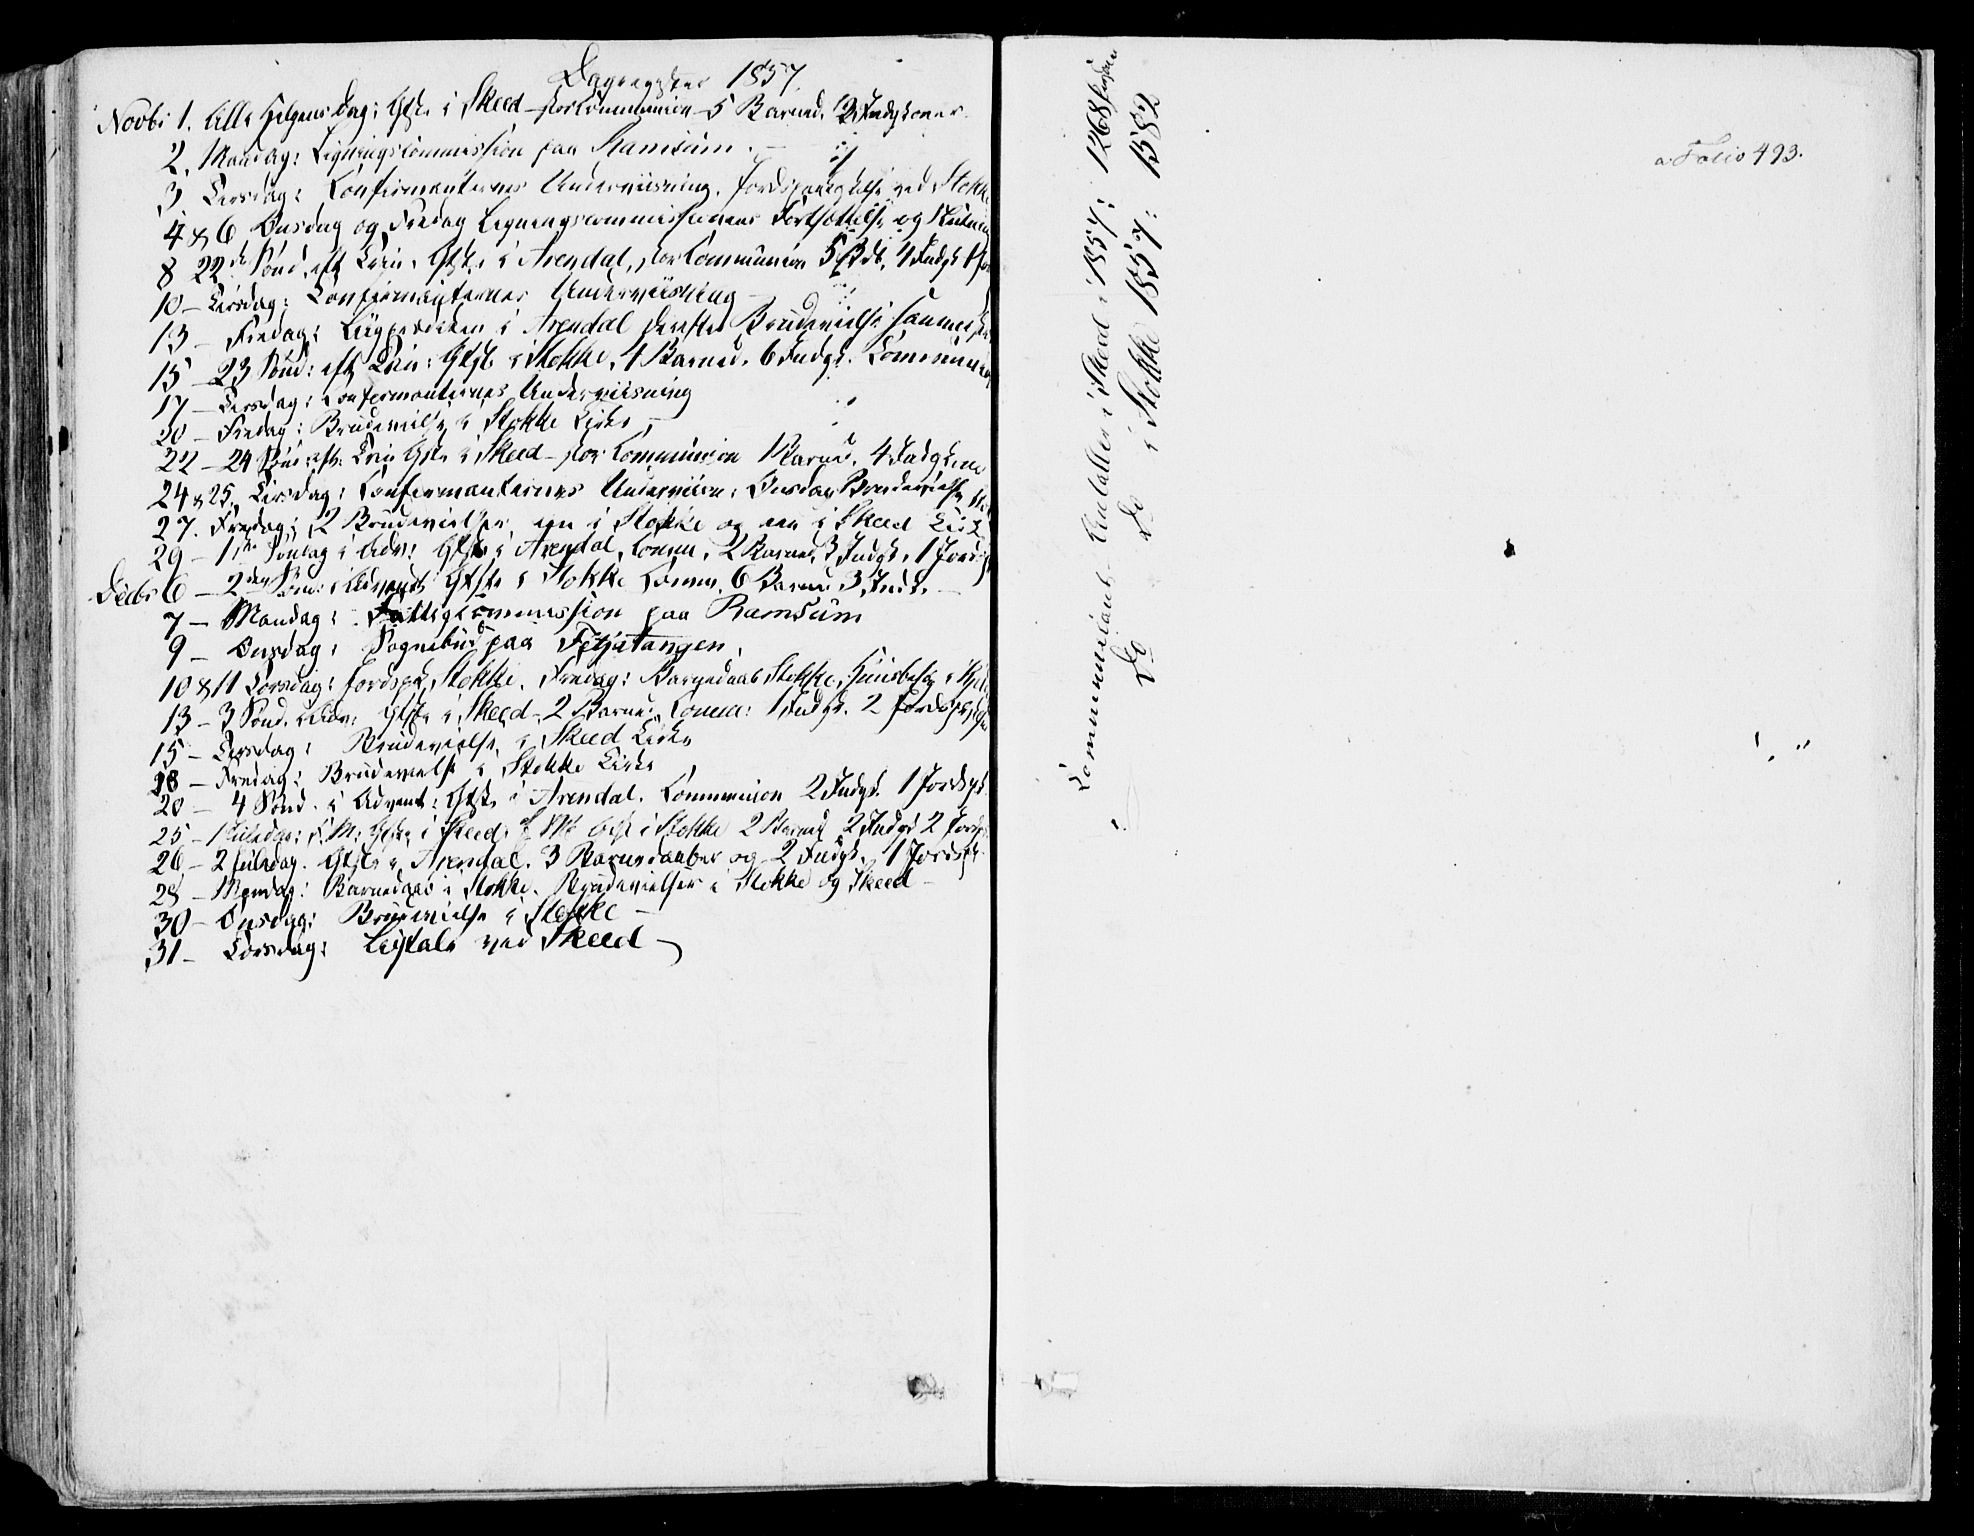 Dagregister 1857.
Novbr 1. Alle Helgens Dag: Gtste i Skeed stor Communion 5 Barned. 3 Indgkoner.
2. Mandag: Ligningscommission paa Stamsum.
3 Tirsdag: Confirmanternes Underviisning. Jordspaakastelse ved Stokke
4 & 6 Onsdag og Fredag Ligningscommissionens Fortsættelse og Slutning
8 22de Sønd. eft Trin: Gtste i Arendal, stor Communion 5 Bdb, 4 Indgk 1
10 - Tirsdag: Confirmanternes Underviisning
13 - Fredag: i Arendal derefter Brudevielse sammesteds
15 - 23 Sønd: eft Trin: Gtste i Stokke, 1 Barned. 6 Indgk. Communion
17 - Tirsdag: Confirmanternes Underviisning
20 - Fredag: Brudevielse i Stokke Kirke -
22 - 24 Sønd: eft. Trin Gtste i Skeed - stor Communion 1 Barned. 4 Indgkone
24 & 25, Tirsdag: Confirmanternes Underviisn: Onsdag Brudevielse
27. Fredag: 2 Brudevielser, een i Stokke og een i Skeed Kirke
29 - 1ste Søndag i Adv: Gtste i Arendal, Comm, 2 Barned, 3 Indgk, 1 Jordsp
Decbr 6 - 2den Sønd: i Advent Gtste i Stokke Comm. 6 Barned 3 Indk.
7 - Mandag: Fattigcommission paa Ramsum
9 - Onsdag: Sognebud paa Fetjatangen,
10 & 11 Torsdag: Jordspk Stokke. Fredag: Barnedaab Stokke, Huusbesøg i
13 - 3 Sønd. i Adv: Gtste i Skeed - 2 Barned, Comm: 1 Indgk. 2 Jordsp
15 - Tirsdag: Brudevielse i Skeed Kirke
18 - Fredag: Brudevielse i Stokke Kirke
20 - 4 Sønd. i Advent: Gtste i Arendal. Communion 2 Indgk. 1 Jordspk
25 - 1 Juledag: F. M: Gtste i Skeed: E Mt i Stokke 2 Barned 2 Indgk 2 Jordsp
26 - 2 Juledag. Gtste i Arendal. 3 Barnedaaber og 2 Indgk. 1 Jordspk.
28 - Mandag: Barnedaab i Stokke. Brudevielser i Stokke og Skeed -
30 - Onsdag: Brudevielse i Stokke -
31 - Torsdag: Ligtale ved Skeed -
Communicant-Antallet i Skeed i 1857: 1268 Personer
Do Do i Stokke 1857: 1582
a Folio 493.